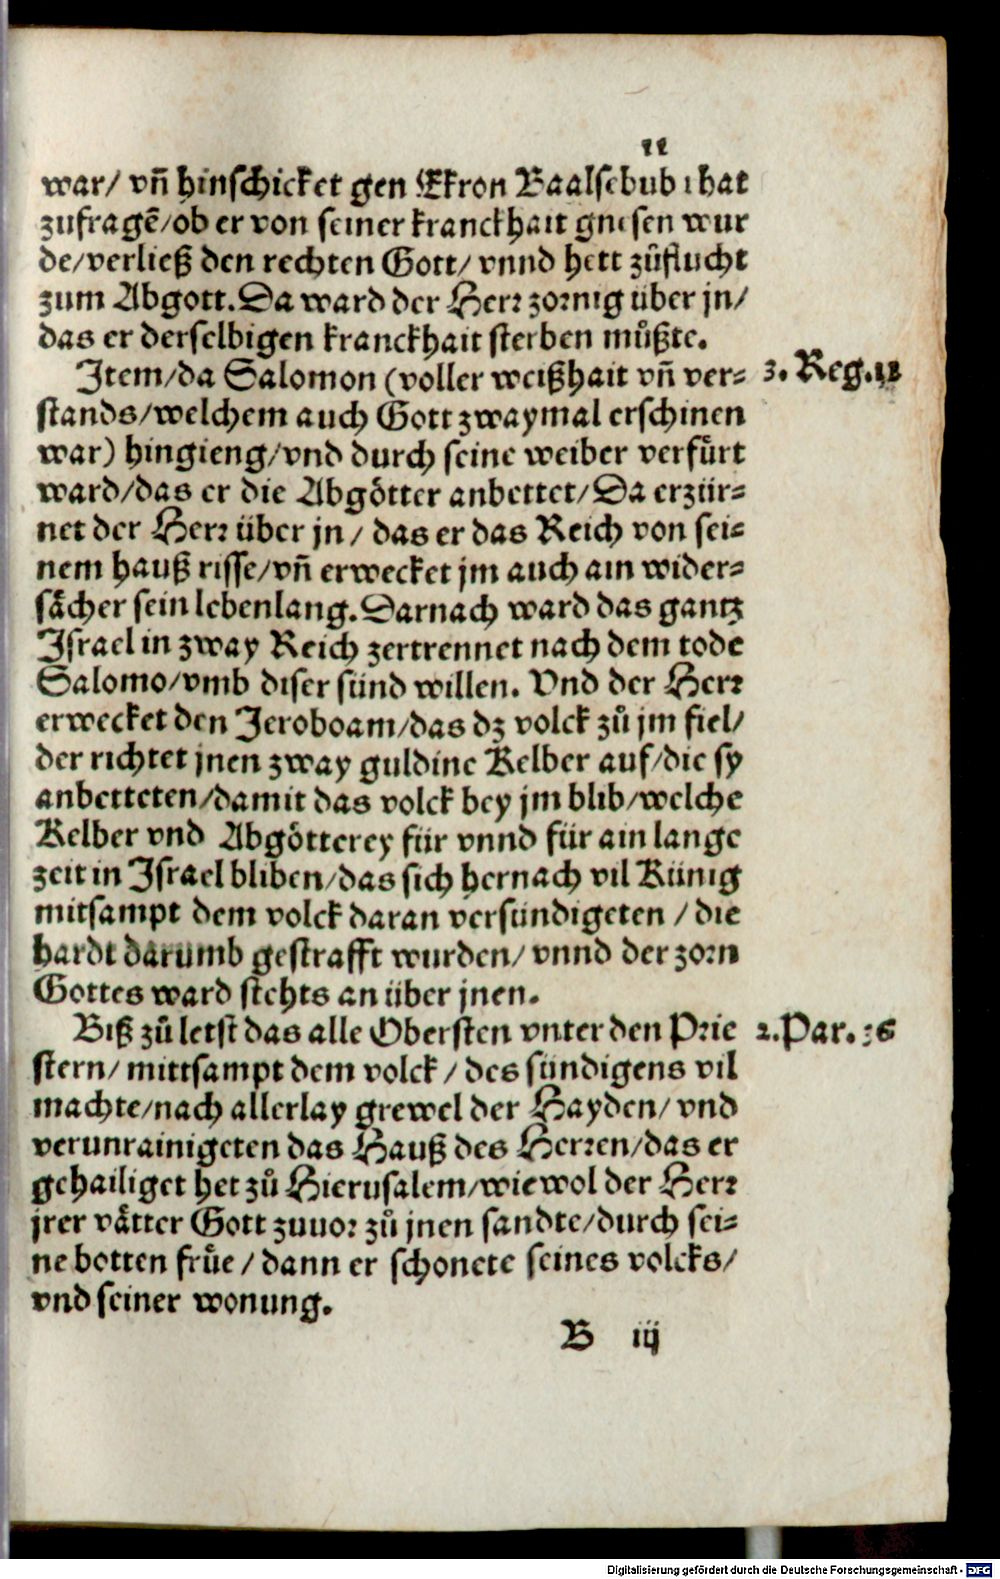 11
war/ vñ hinschicket gen Ekron Baalsebub rhat
zufragē/ob er von seiner kranckhait gnesen wur
de/verließ den rechten Gott/ vnnd hett zůflucht
zum Abgott. Da ward der Herr zornig über jn/
das er derselbigen kranckhait sterben můßte.
Item/da Salomon (voller weißhait vñ ver= 3. Reg. 11
stands/welchem auch Gott zwaymal erschinen
war) hingieng/vnd durch seine weiber verfůrt
ward/das er die Abgötter anbettet/Da erzür=
net der Herr über jn/ das er das Reich von sei=
nem hauß risse/vñ erwecket jm auch ain wider=
såcher sein lebenlang. Darnach ward das gantz
Israel in zway Reich zertrennet nach dem tode
Salomo/vmb diser sünd willen. Vnd der Herr
erwecket den Jeroboam/das dz volck zů jm fiel/
der richtet jnen zway guldine Kelber auf/die sy
anbetteten/damit das volck bey jm blib/welche
Kelber vnd Abgötterey für vnnd für ain lange
zeit in Israel bliben/das sich hernach vil Künig
mitsampt dem volck daran versündigeten / die
hardt darumb gestrafft wurden/ vnnd der zorn
Gottes ward stehts an über jnen.
Biß zů letst das alle Obersten vnter den Prie 2. Par. 36
stern/ mittsampt dem volck / des sündigens vil
machte/nach allerlay grewel der Hayden/ vnd
verunrainigeten das Hauß des Herren/das er
gehailiget het zů Hierusalem/wiewol der Herr
jrer våtter Gott zuuor zů jnen sandte/durch sei=
ne botten frůe / dann er schonete seines volcks/
vnd seiner wonung.
B iij
Digitalisierung gefördert durch die Deutsche Forschungsgemeinschaft - DFG